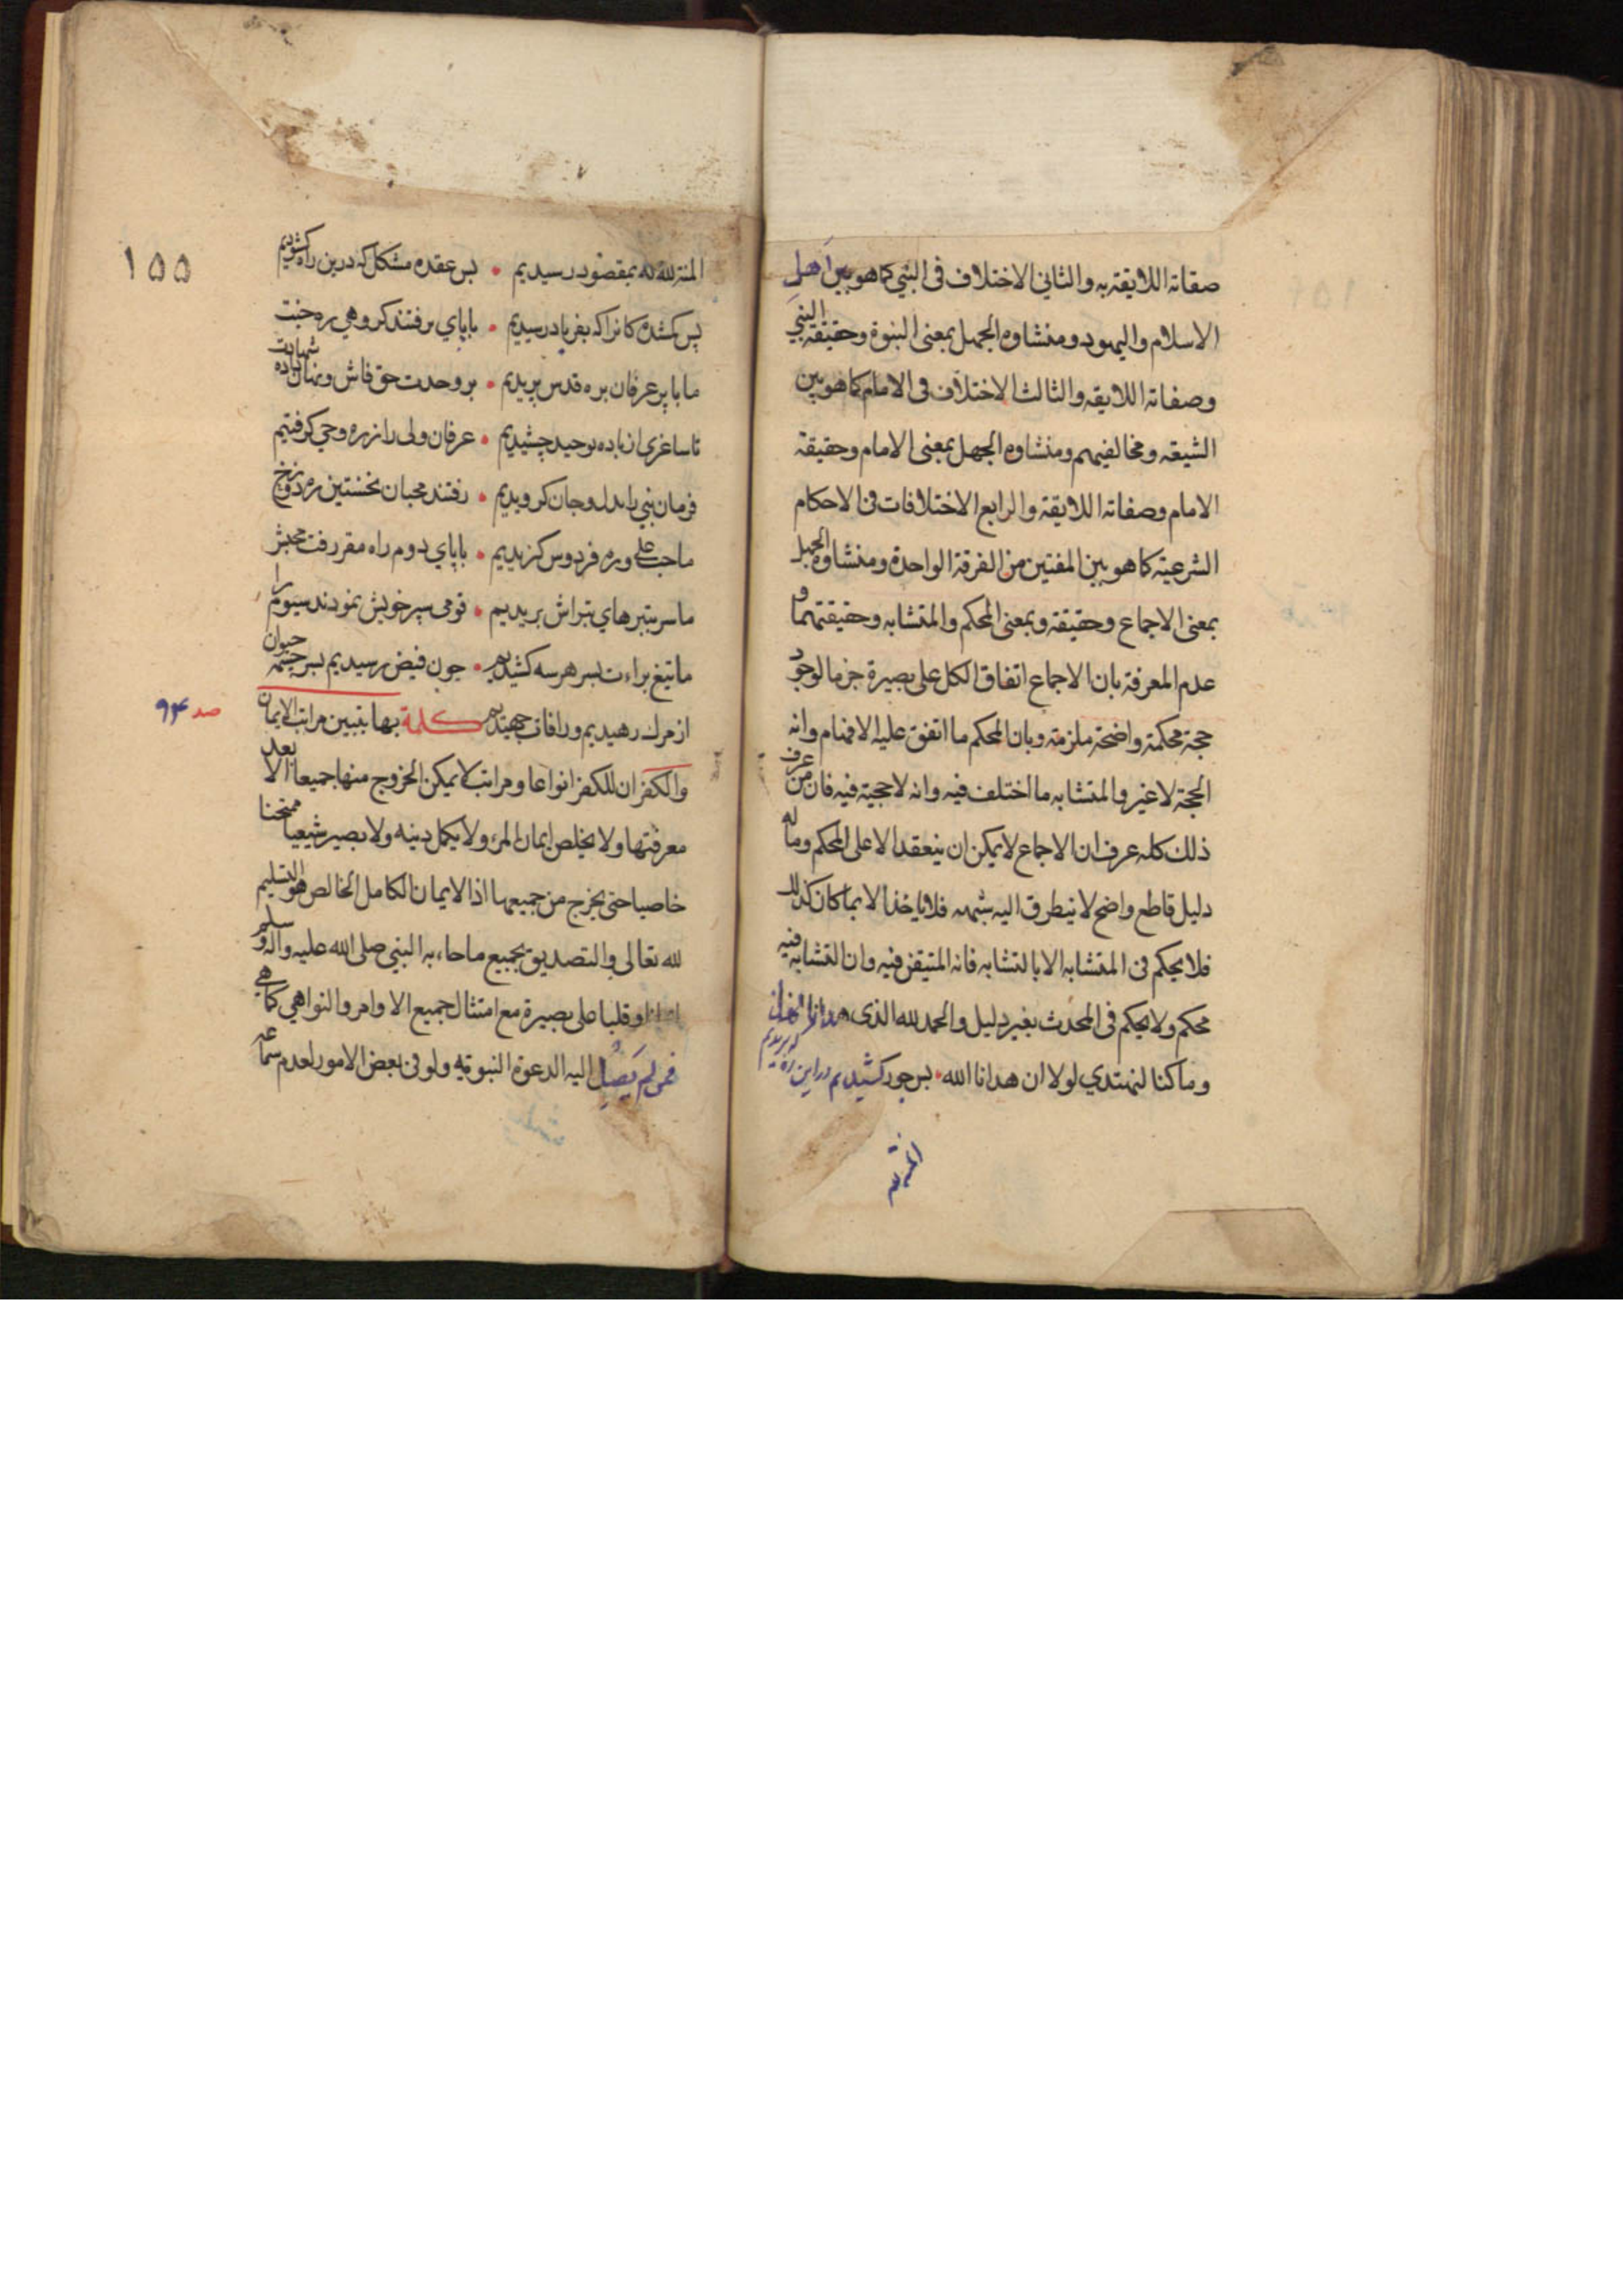 صفاته اللايقة به والثاني الاختلاف في النبي كما هو بين اهل
الاسلام واليهود ومنشاوه الجهل بمعنى النبوة وحقيقة النبي
وصفاته اللايقه والثالث الاختلاف في الامام كما هو بين
الشيعه ومخالفيهم ومنشاوه الجهل بمعنى الامام وحقيقة
الامام وصفاته اللايقة والرابع الاختلافات في الاحكام
الشرعيه كما هو بين المفتين من الفرقة الواحدة ومنشاوه الجهل
بمعنى الاجماع وحقيقته وبمعنى المحكم والمتشابه وحقيقتهما و
عدم المعرفة بان الاجماع اتفاق الكل على بصيرة جزما لوجود
حجة محكمة واضحة ملزمة وبان المحكم ما اتفق عليه الافهام وانه
الحجة لا غير والمتشابه ما اختلف فيه وانه لا حجية فيه فان من عرف
ذلك كله عرف ان الاجماع لا يمكن ان ينعقد الا على المحكم وما له
دليل قاطع واضح لا يتطرق اليه شبهه فلا ياخذ الا بما كان كذلك
فلا يحكم في المتشابه الا بالتشابه فانه المتيقن فيه وان التشابه فيه
محكم ولا يحكم في المحدث بغير دليل والحمد لله الذي هدانا لهذا
وما كنا لنهتدي لولا ان هدانا الله • بس جور كشيديم در اين ره كه بريديم
المنة لله
١٥٥
المنة لله كه بمقصود رسيديم • بس عقده مشكل كه درين راه كشوديم
بس كمشده كانرا كه بفرياد رسيديم • با پاي برفتند كروهي ره جنت
ما با پر عرفان بره قدس پريديم • بر وحدت حق فاش ونهان داده شهادت
تا ساغري از باده توحيد چشيديم • عرفان ولي را ز ره وحي كرفتيم
فرمان نبي را بدل وجان كرويديم • رفتند محبان نخستين ره دوزخ
ما حب علي وره فردوس كزيديم • با پاي دوم راه مقر رفت محبش
ما سر بتبرهاي تبراش بريديم • قومي سپر خويش نمودند سيوم را
ما تيغ براءت بسر هر سه كشيديم • چون فيض رسيديم بسر چشمه حيوان
از مرك رهيديم وز افات جهيديم كلمة بها يتبين مراتب الايمان
صد ۹۴
والكفر ان للكفر انواعا ومراتب لا يمكن الخروج منها جميعا الا بعد
معرفتها ولا يخلص ايمان المرء ولا يكمل دينه ولا يصير شيعيا ممتحنا
خاصيا حتى يخرج من جميعها اذ الايمان الكامل الخالص هو التسليم
لله تعالى والتصديق بجميع ما جاء به النبي صلى الله عليه واله وسلم
لسانا وقلبا على بصيرة مع امتثال جميع الاوامر والنواهي كما هي
فمن لم يصل اليه الدعوة النبويه ولو في بعض الامور لعدم سماعه